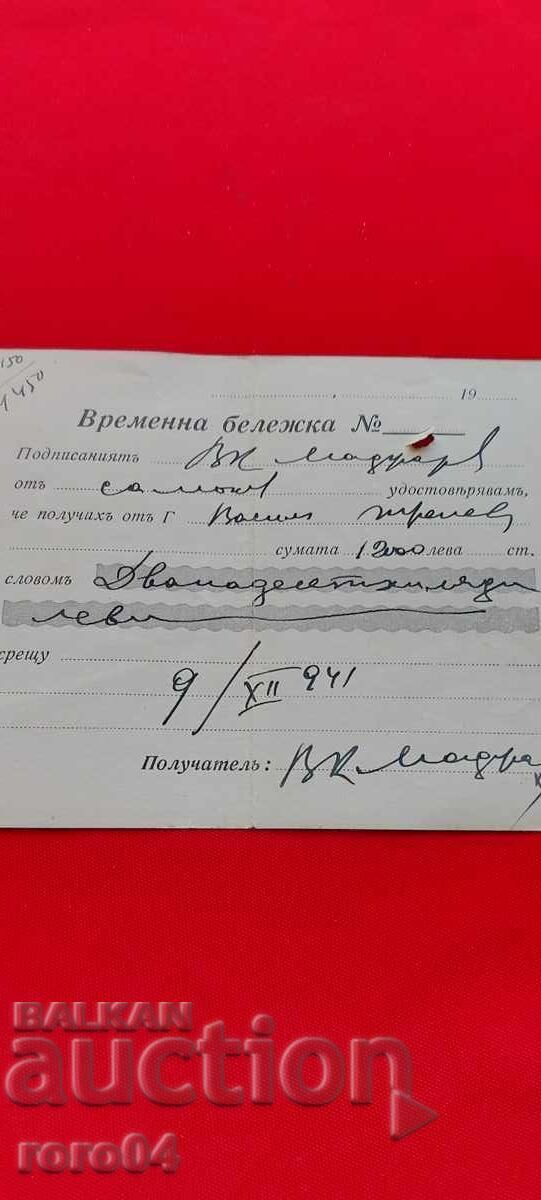 150
1450
19
Временна бележка №
Подписаниятъ ВК Маджаров
отъ Самоков удостовѣрявамъ,
че получихъ отъ Г Васил
сумата 12000 лева ст.
словомъ Дванадесет хиляди
леви
срещу
9/XII 941
Получатель: ВК Маджа
BALKAN
auction
roro04